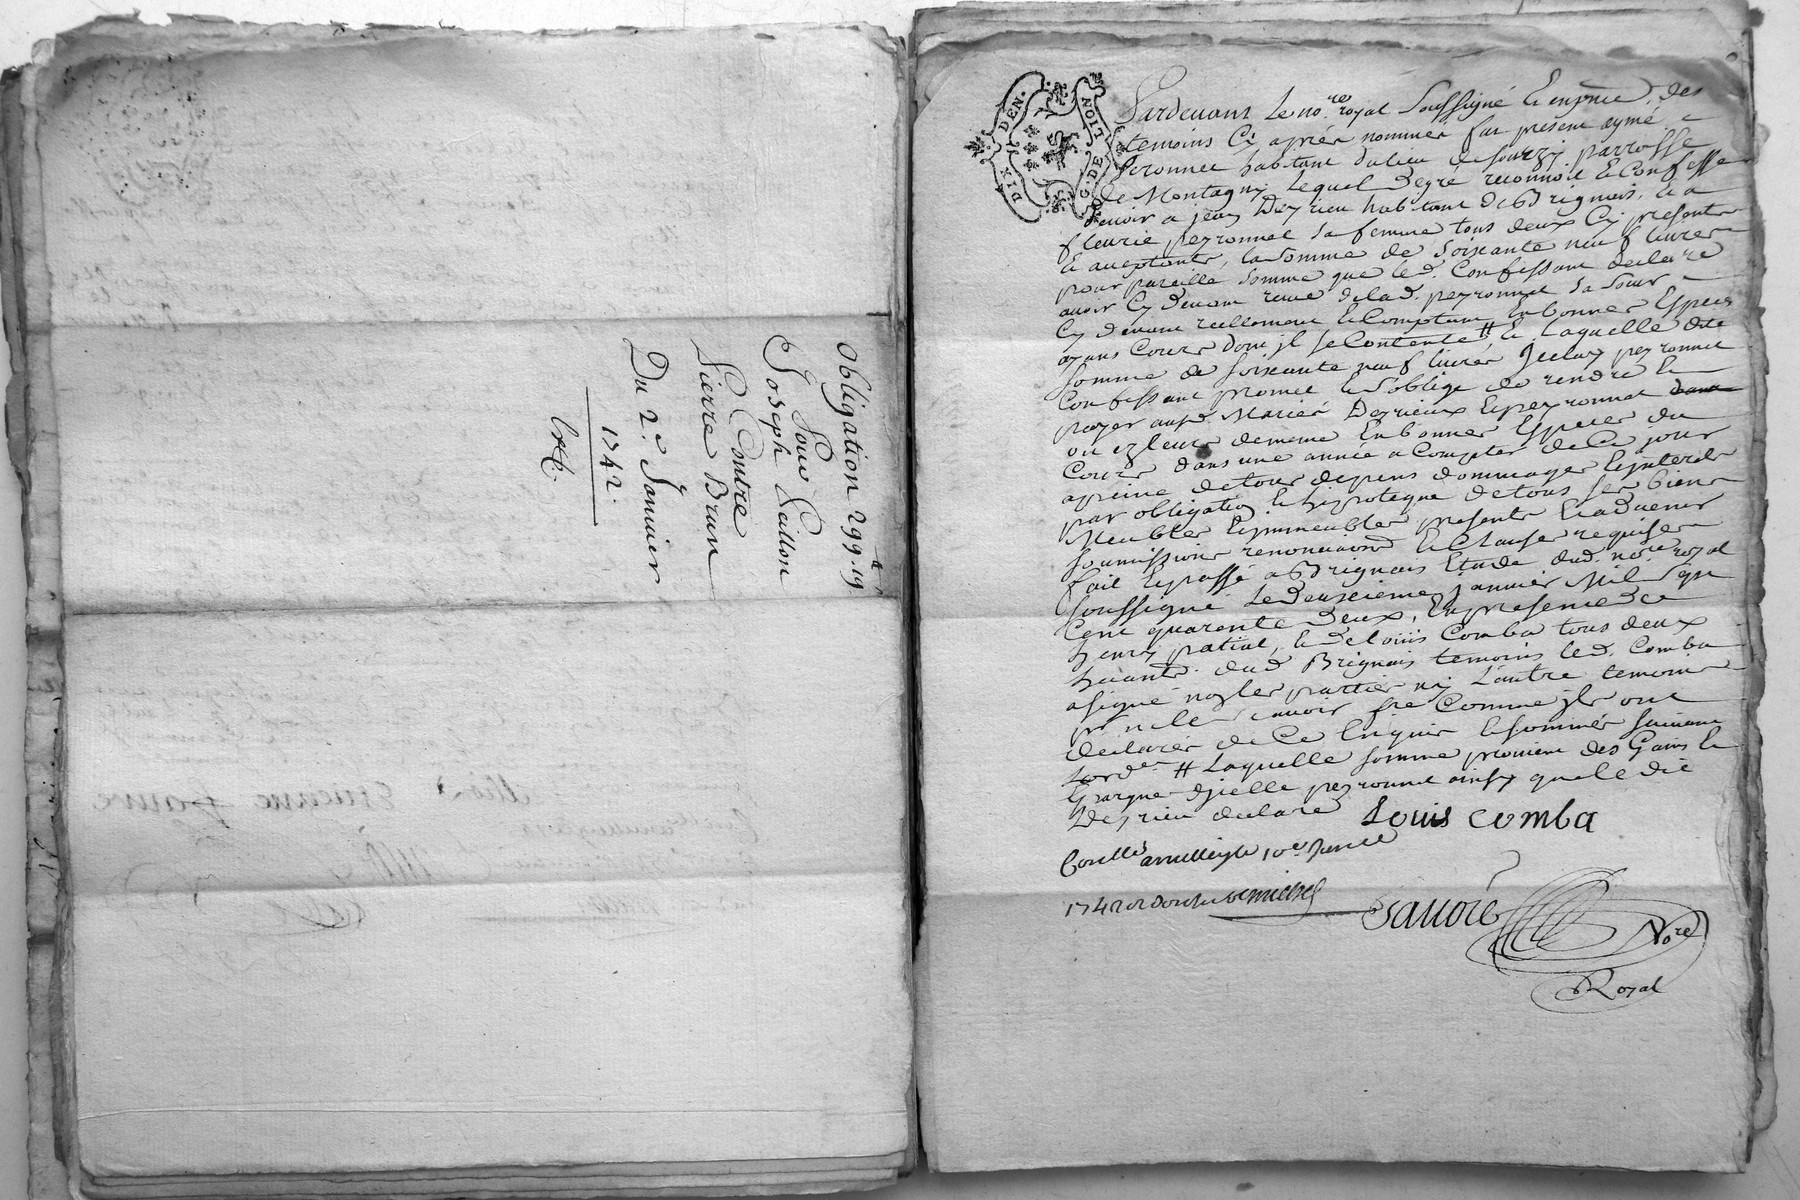 Obligation 299.19
Pour
Joseph
Contre
Pierre Brun
Du 2.e Janvier
1742.
DIX DEN. G. DE NOIT
Pardevant Le no.re royal Soussigné Et en pnce des
temoins Cy après nommés fut présent aymé
Peronnet habitant dulieu de Sourzy parroisse
de Montagny Lequel degré reconnoit Et Confesse
devoir a jean Deyrieu habitant de Brignais, Et a
fleurie peyronnet sa femme tous deux Cy presents
Et aceptants, la Somme de Soixante neuf livres
pour pareille Somme que led. Confessant declare
avoir Cy devant receue delad. peyronnet Sa Soeur
Cy devant reellement Et Comptant En bonnes Especes
ayans Cours dont jl se Contente # Et Laquelle dite
Somme de Soixante neuf livres jceluy peyronnet
Confessant promet Et S'oblige de rendre Et
payer ausd. Mariés Deyrieux Et peyronnet dans
ou ez leurs demeure En bonnes Especes du
Cours dans une année a Compter de Ce jour
a peine de tous depens dommages Et jnterets
par obligation Et hipoteque de tous Ses biens
Meubles Et jmmeubles presents Et advenir
Soumissions renonciations Et Clauses requises
fait Et passé a Brignais Etude dud. no.re royal
Soussigné Le deuxieme janvier Mil Sept
Cent quarante deux, En presence de
henry patial, Et de louis Comba tous deux
habitants dud. Brignais temoins led. Comba
a signé non les parties ny L'autre temoin
pr ne le scavoir fre Comme jls ont
declarés de Ce Enquis Et sommés Suivant
Lord.ce # Laquelle somme provient des Gains Et
Epargne djcelle peyronnet ainsy que le dit
Deyrieu declare Louis comba
Conllé a le 10.e Janvier
1742
Savoie Nore
Royal